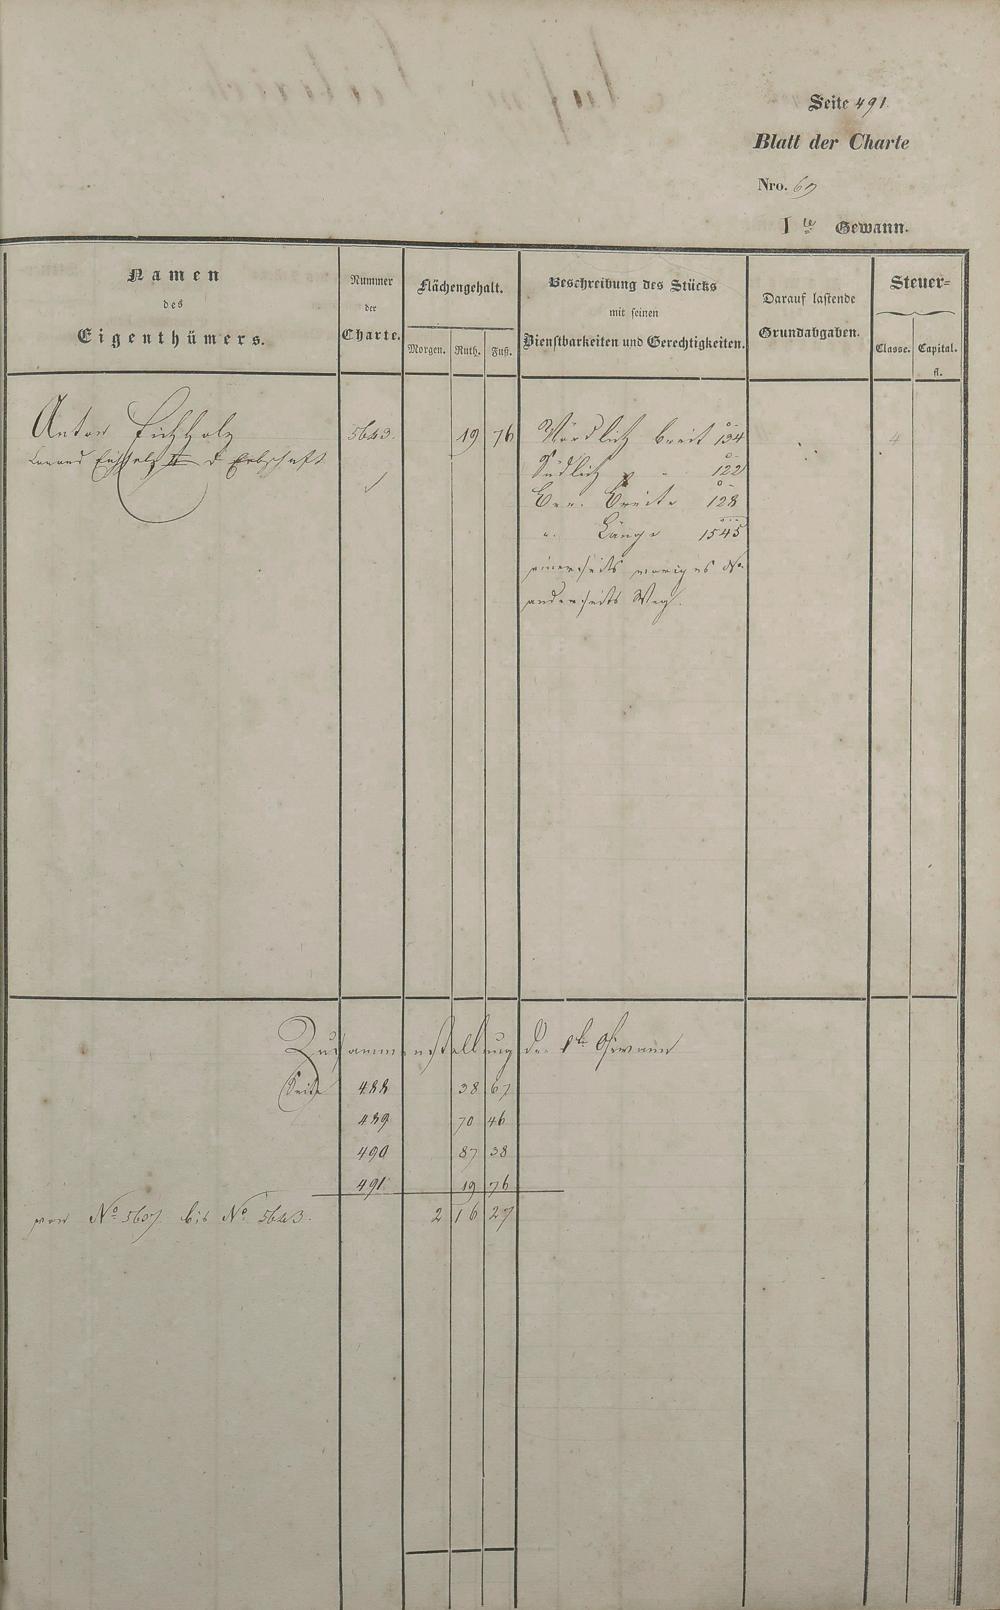 Seite 491
Blatt der Charte
Nro. 69
1te Gewann.
Namen
des
Eigenthümers.
Nummer
der
Charte.
Flächengehalt.
Morgen. Ruth. Fuß.
Beschreibung des Stücks
mit seinen
Dienstbarkeiten und Gerechtigkeiten.
Darauf lastende
Grundabgaben.
Steuer=
Classe. Capital.
fl.
Anton Eichholz 5643. 19 76 Nördlich breit 134
II Erbschaft Südlich " - 122
Breite 128
". Länge 1545
einerseits voriges No.
anderseits Weg.
4
Zusammenstellung der 1te Gewann
Seite 488 38 67
489 70 46
490 87 38
491 19 76
von No 5607 bis No 5643. 2 16 27